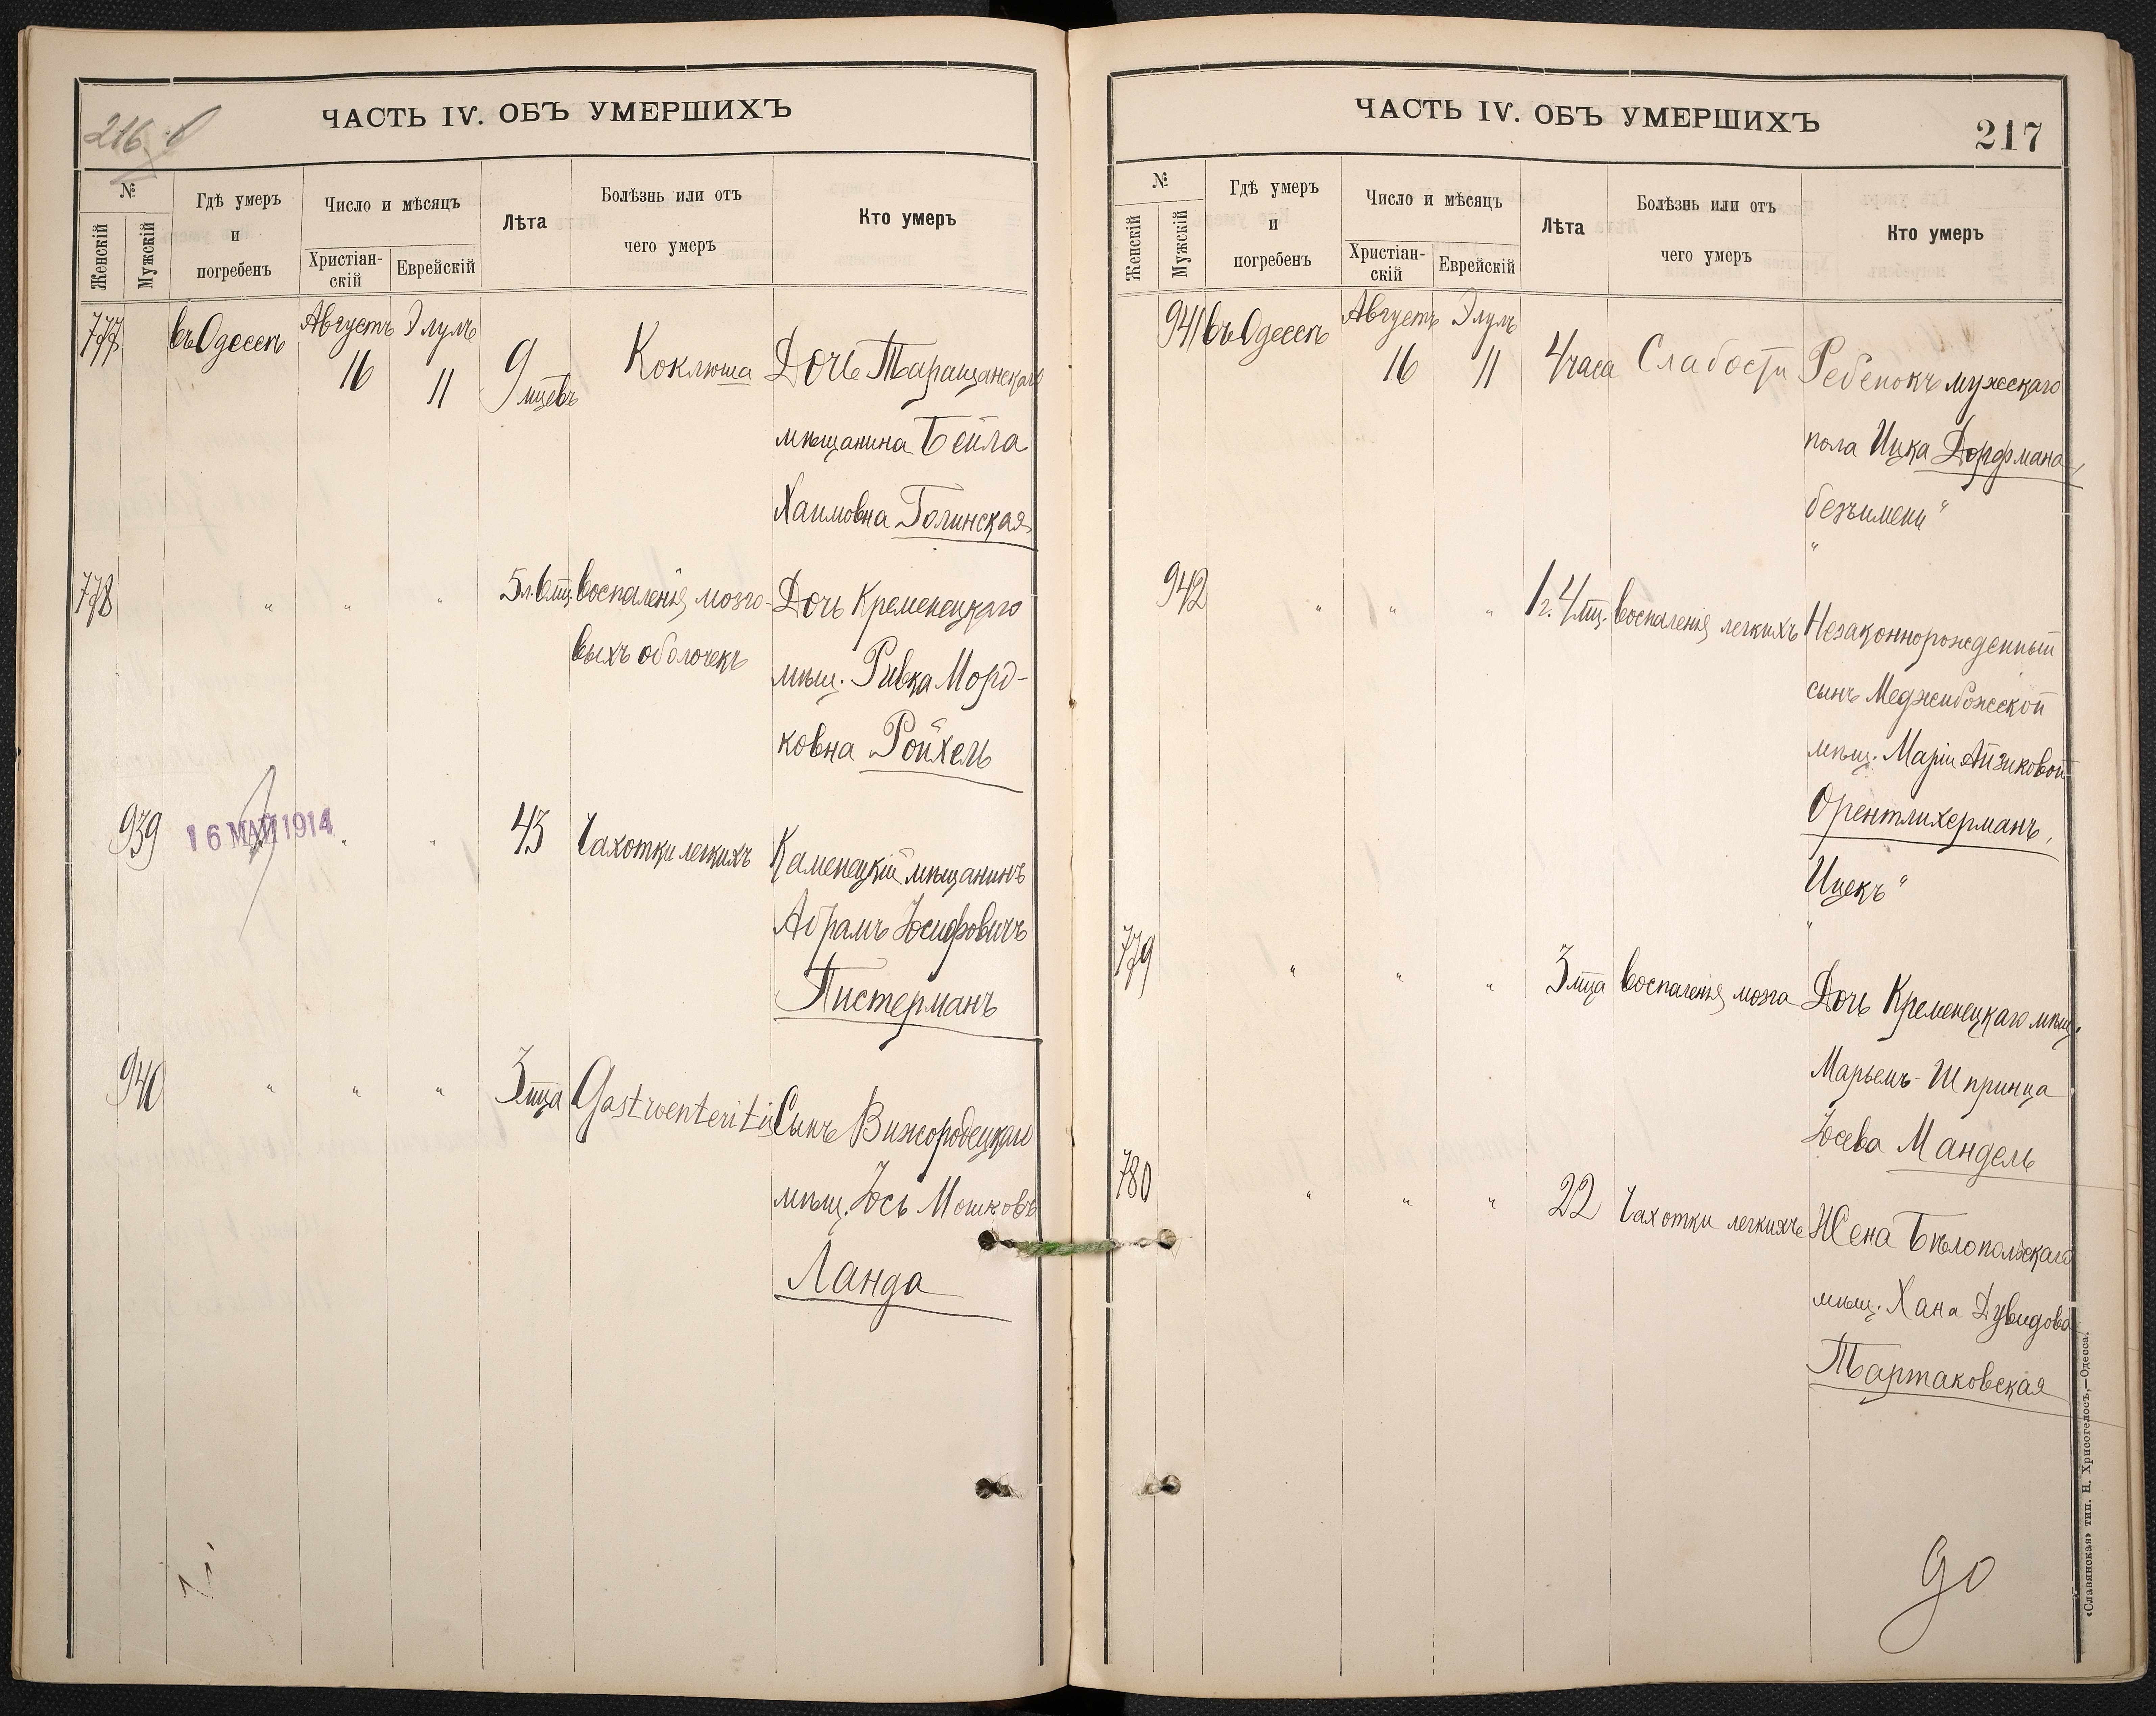 216 об
ЧАСТЬ IV. ОБЪ УМЕРШИХЪ
№
Женскій
Мужскій
Гдѣ умеръ
и
погребенъ
Число и мѣсяцъ
Христіан-
скій
Еврейскій
Лѣта
Болѣзнь или отъ
чего умеръ
Кто умеръ
777 въ Одессѣ Августъ 16 Элулъ 11 9 мцевъ Коклюша Дочь Таращанскаго
мѣщанина Бейла
Хаимовна Голинская
778 " " " 5 л. 6 мц. воспаленія мозго- Дочь Кременецкаго
выхъ оболочекъ мѣщ. Ривка Морд-
ковна Ройхель
939 16 МАЙ 1914 " " 43 Чахотки легкихъ Каменецкій мѣщанинъ
Абрамъ Іосифовичъ
Пистерманъ
940 " " " 3 мца Gastroenteritis Сынъ Вижгородецкаго
мѣщ. Іось Мошковъ
Ланда
ЧАСТЬ IV. ОБЪ УМЕРШИХЪ
217
№
Женскій
Мужскій
Гдѣ умеръ
и
погребенъ
Число и мѣсяцъ
Христіан-
скій
Еврейскій
Лѣта
Болѣзнь или отъ
чего умеръ
Кто умеръ
941 въ Одессѣ Августъ 16 Элулъ 11 4 часа Слабости Ребенокъ мужескаго
пола Ицка Дорфмана,
„безъимени“
942 " " " 1 г. 4 мц. воспаленія легкихъ Незаконнорожденный
сынъ Меджибожской
мѣщ. Маріи Айзиковой
Орентлихерманъ,
„Ицекъ“
779 " " " 3 мца воспаленія мозга Дочь Кременецкаго мѣщ.
Марьемъ-Шпринца
Іосева Мандель
780 " " " 22 Чахотки легкихъ Жена Бѣлопольскаго
мѣщ. Хана Дувидова
Тартаковская
до
«Славянская» тип. Н. Хрисогелосъ,—Одесса.